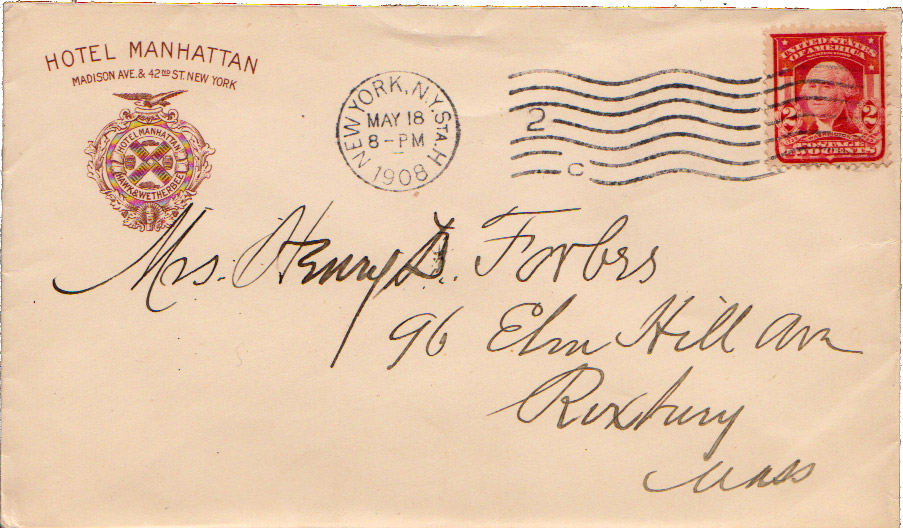 HOTEL MANHATTAN
MADISON AVE. & 42ND ST. NEW YORK
HOTEL MANHATTAN
HAWK & WETHERBEE
NEW YORK, N.Y. STA. H
MAY 18
8-PM
1908
2
C
UNITED STATES
OF AMERICA
2 2
TWO CENTS
Mrs. Henry D. Forbes
96 Elm Hill Ave
Roxbury
Mass